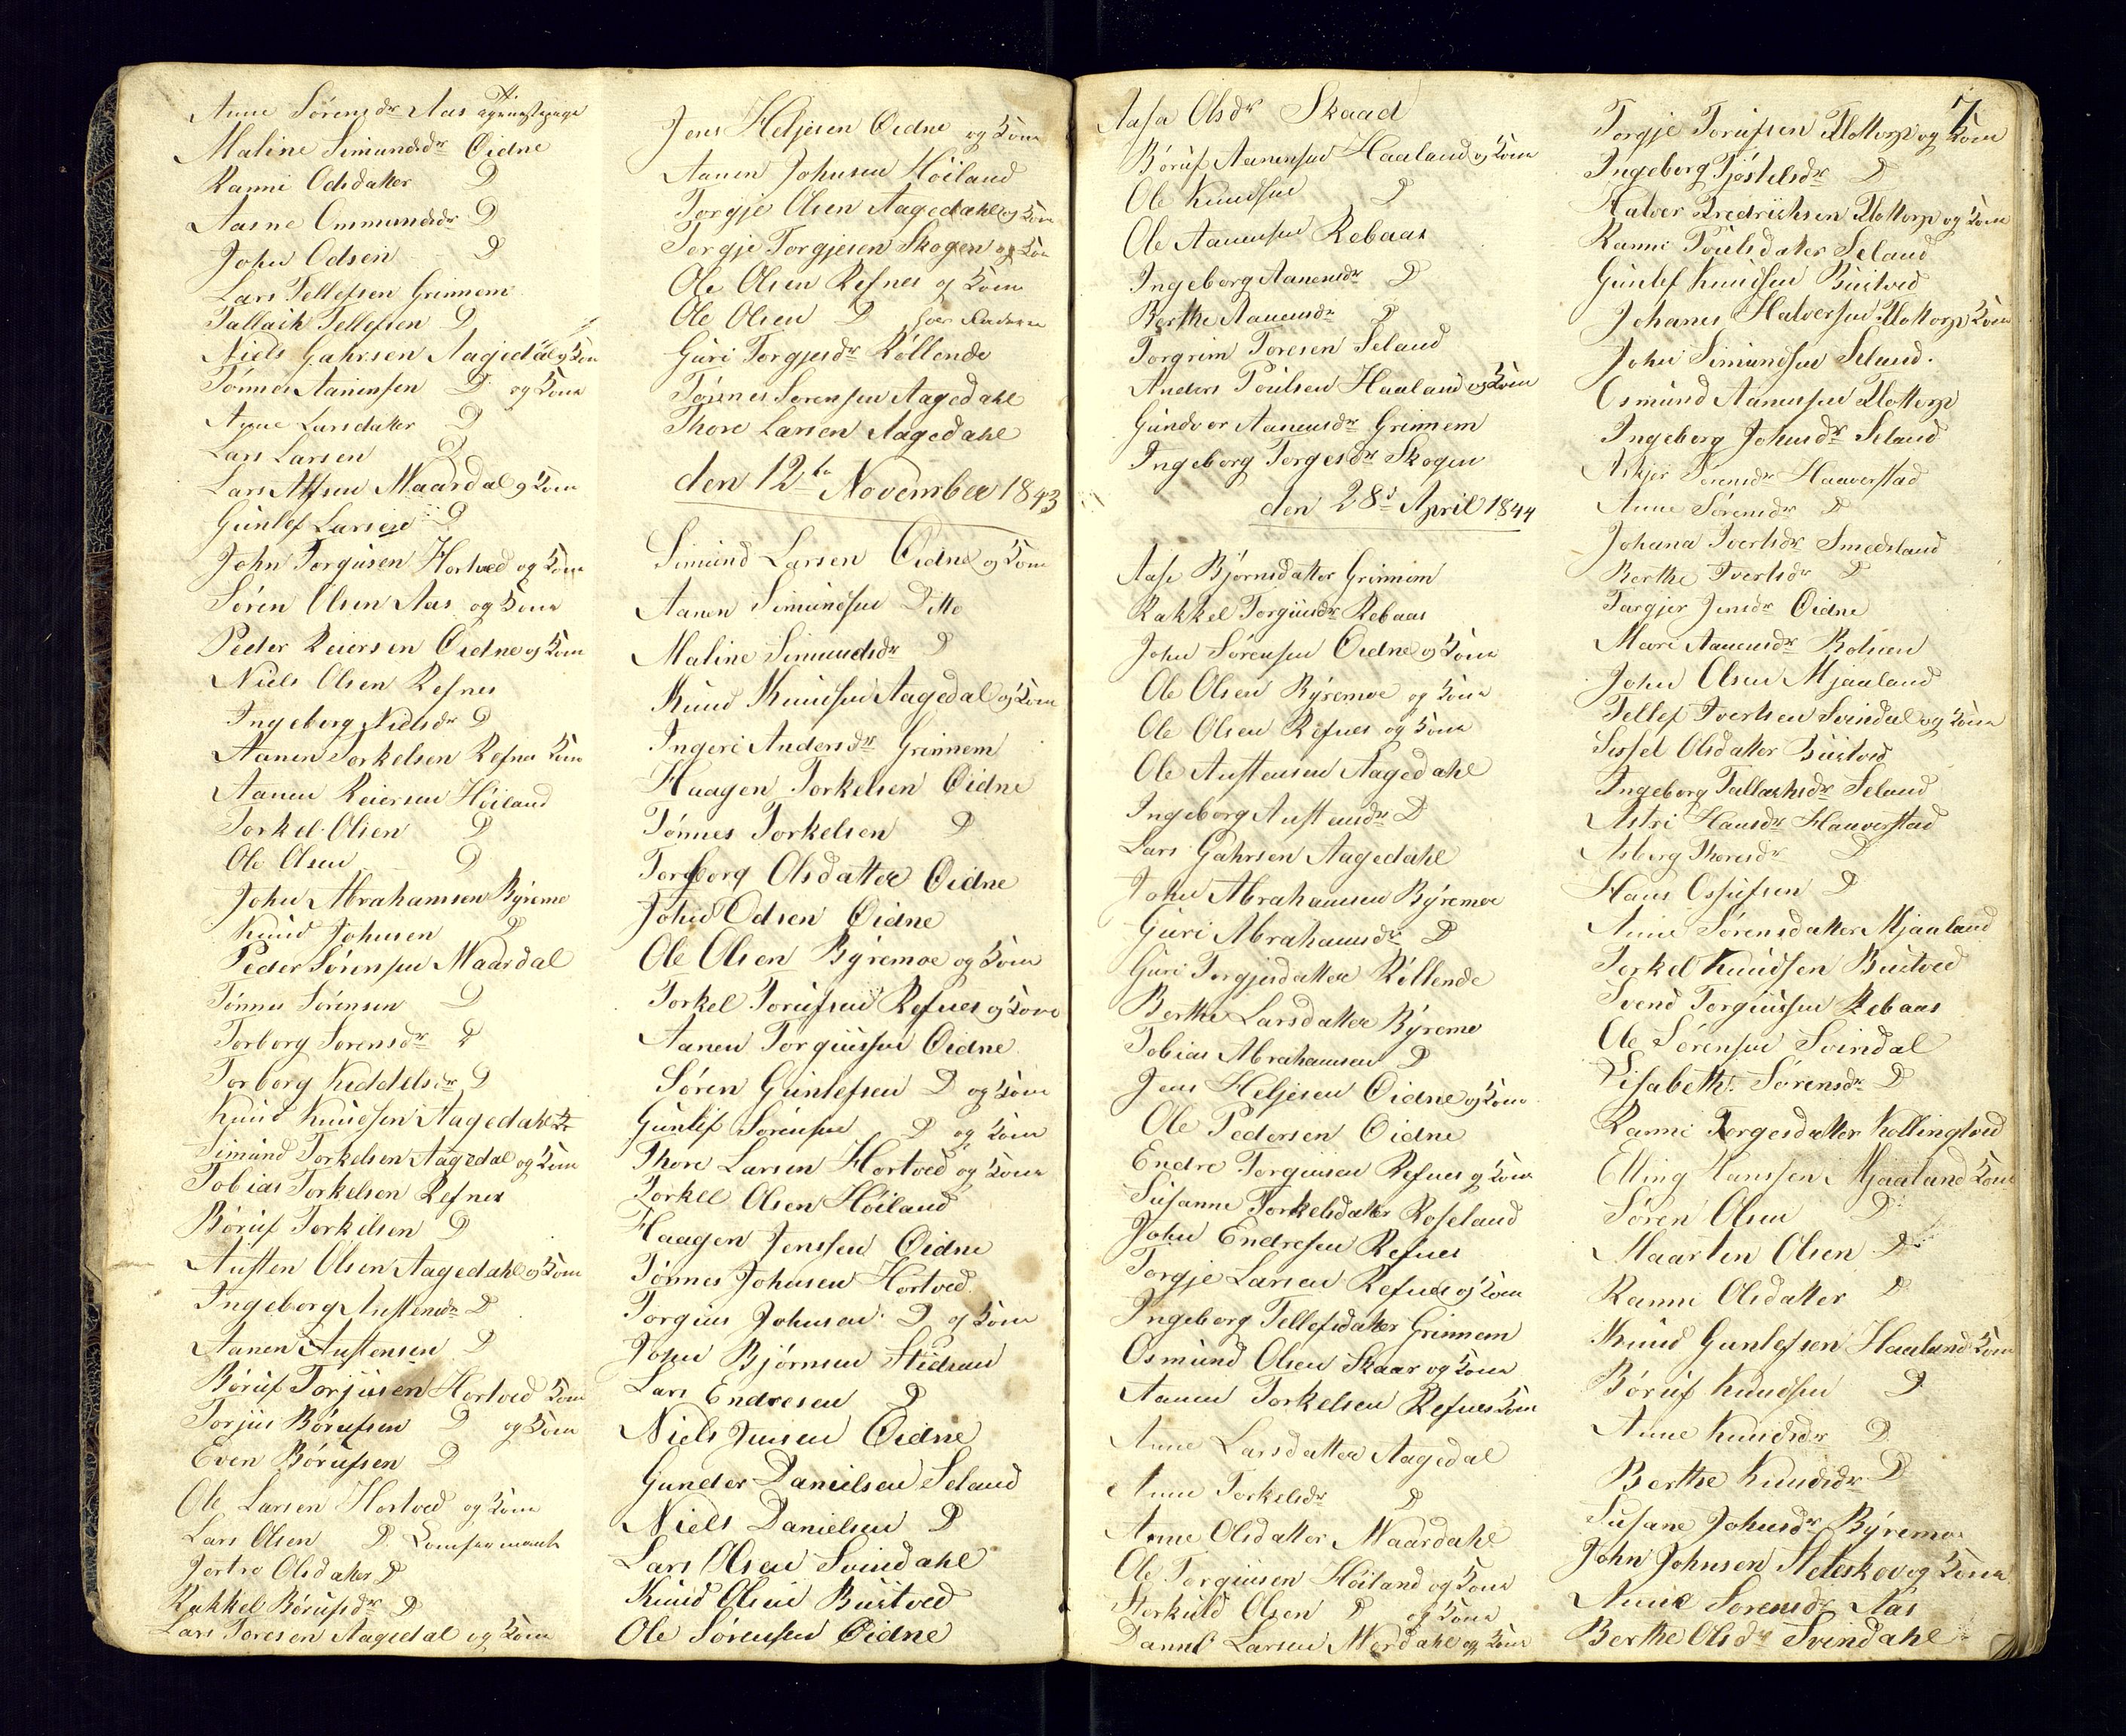 Anne Sørensdr Aas
Maline Simundsdr Øidne
Ranni Odsdatter D
Aasne Ommundsdr D
John Odsen D
Lars Tellefsen Grinnem
Tallach Tellefsen D
Niels Gahrsen Aagedal og Kone
Tønnes Aanensen D og Kone
Anne Larsdatter D
Lars Larsen D
Lars Alfsen Maardal og Kone
Gunlef Larsen D
John Torgusen Hortved og Kone
Søren Olsen Aas og Kone
Peder Reiersen Øidne og Kone
Niels Olsen Refnes
Ingeborg Nielsdr D
Aanen Torkelsen Refnes Kone
Aanen Reiersen Høiland
Torkel Olsen D
Ole Olsen D
John Abrahamsen Byremo
Knud Johnsen D
Peder Sørensen Maardal
Tønnes Sørensen D
Torborg Sørensdr D
Torborg Keddelsdr D
Knud Knudsen Aagedahl
Simund Torkelsen Aagedal og Kone
Tobias Torkelsen Refnes
Børuf Torkelsen D
Austen Olsen Aagedahl og Kone
Ingeborg Austensdr D
Aanen Austensen D
Børuf Torjusen Hortved Kone
Torjus Børufsen D og Kone
Even Børufsen D
Ole Larsen Hortved og Kone
Lars Olsen D
Jertro Olsdatter D
Rakkel Børufsdr D
Lars Toresen Aagedal og Kone
Jens Heljesen Øidne og Kone
Aanen Johnsen Høiland
Torgje Olsen Aagedahl og Kone
Torgje Torgjesen Skogen og Kone
Ole Olsen Refnes og Kone
Ole Olsen D
Guri Torgjesdr Røllende
Tønnes Sørensen Aagedahl
Thore Larsen Aagedahl
den 12te November 1843
Simund Larsen Øidne og Kone
Aanen Simundsen Ditto
Maline Simundsdr D
Knud Knudsen Aagedal og Kone
Ingeri Andersdr Grinnem
Haagen Torkelsen Øidne
Tønnes Torkelsen D
Torgborg Olsdatter Øidne
John Odsen Øidne
Ole Olsen Byremoe og Kone
Torkel Torufsen Refnes og Kone
Aanen Torgiussen Øidne
Søren Gunlefsen D og Kone
Gunlef Sørensen D og Kone
Thore Larsen Hortved og Kone
Torkel Olsen Høiland
Haagen Jenssen Øidne
Tønnes Johnsen Hortved
Torgius Johnsen D og Kone
John Bjørnsen
Lars Endresen D
Niels Jensen Øidne
Gunder Danielsen Seland
Niels Danielsen D
Lars Olsen Svindahl
Knud Olsen Bustved
Ole Sørensen Øidne
Aasa Olsdr Skaad
Børuf Aanensen Haaland og Kone
Ole Knudsen D
Ole Aanensen Rebaas
Ingeborg Aanensdr D
Berthe Aanensdr D
Torgrim Toresen Seland
Anders Poulsen Haaland og Kone
Gundvor Aanensdr Grinnem
Ingeborg Torgesdr Skogen
den 28d April 1844
Aase Bjørnsdatter Grinnem
Rakkel Torgiusdr Rebaas
John Sørensen Øidne og Kone
Ole Olsen Byremoe og Kone
Ole Olsen Refnes og Kone
Ole Austensen Aagedahl
Ingeborg Austensdr D
Lars Gahrsen Aagedahl
John Abrahamsen Byremoe
Guri Abrahamsdr D
Guri Torgjesdatter Røllende
Berthe Larsdatter Byremo
Tobias Abrahamsen D
Jens Heljesen Øidne og Kone
Ole Pedersen Øidne
Endre Torgiusen Refnes og Kone
Susanne Torkelsdatter Roseland
John Endresen Refnes
Torgje Larsen Refnes og Kone
Ingeborg Tellefsdatter Grinnem
Osmund Olsen Skaar og Kone
Aanen Torkelsen Refnes Kone
Anne Larsdatter Aagedal
Anne Torkelsdr D
Anne Olsdatter Maardahl
Ole Torgiusen Høiland og Kone
Storkuld Olsen D og Kone
Daniel Larsen Mordahl og Kone
7
Torgje Torufsen Flottorp og Kone
Ingeborg Tjøstelsdr D
Halvor Fredrichsen Flottorp og Kone
Ranni Poulsdatter Seland
Gunlef Knudsen Bustved
Johanes Halvorsen Flottorp Kone
John Simundsen Seland.
Osmund Aanensen Flottorp
Ingeborg Johnsdr Seland
Askjer Sørensdr Haaverstad
Anne Sørensdr D
Johana Ivertsdr Smedsland
Berthe Ivertsdr D
Targjer Jensdr Øidne
Mari Aanensdr
John Olsen Mjaaland
Tellef Ivertsen Svindal og Kone
Sissel Olsdatter Bustved
Ingeborg Tallachsdr Seland
Astri Hansdr Haaverstad
Asberg Thoresdr D
Hans Osufsen D
Anne Sørensdatter Mjaaland
Torkel Knudsen Bustved
Svend Torgiussen Rebaas
Ole Sørensen Svindal
Lisabeth Sørensdr D
Ranni Torgesdatter Kollingtved
Elling Hanssen Mjaaland Kone
Søren Olsen D
Maarten Olsen D
Ranni Olsdatter D
Knud Gunlefsen Haaland Kone
Børuf Knudsen D
Anne Knudsdr D
Berthe Knudsdr D
Susane Johnsdr Byremo
John Johnsen Steleskov og Kone
Anne Sørensdr Aas
Berthe Olsdr Svendahl